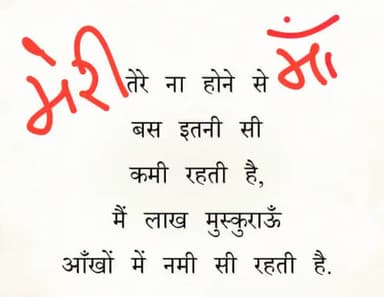 मेरी माँ
तेरे ना होने से
बस इतनी सी
कमी रहती है,
मैं लाख मुस्कुराऊँ
आँखों में नमी सी रहती है.